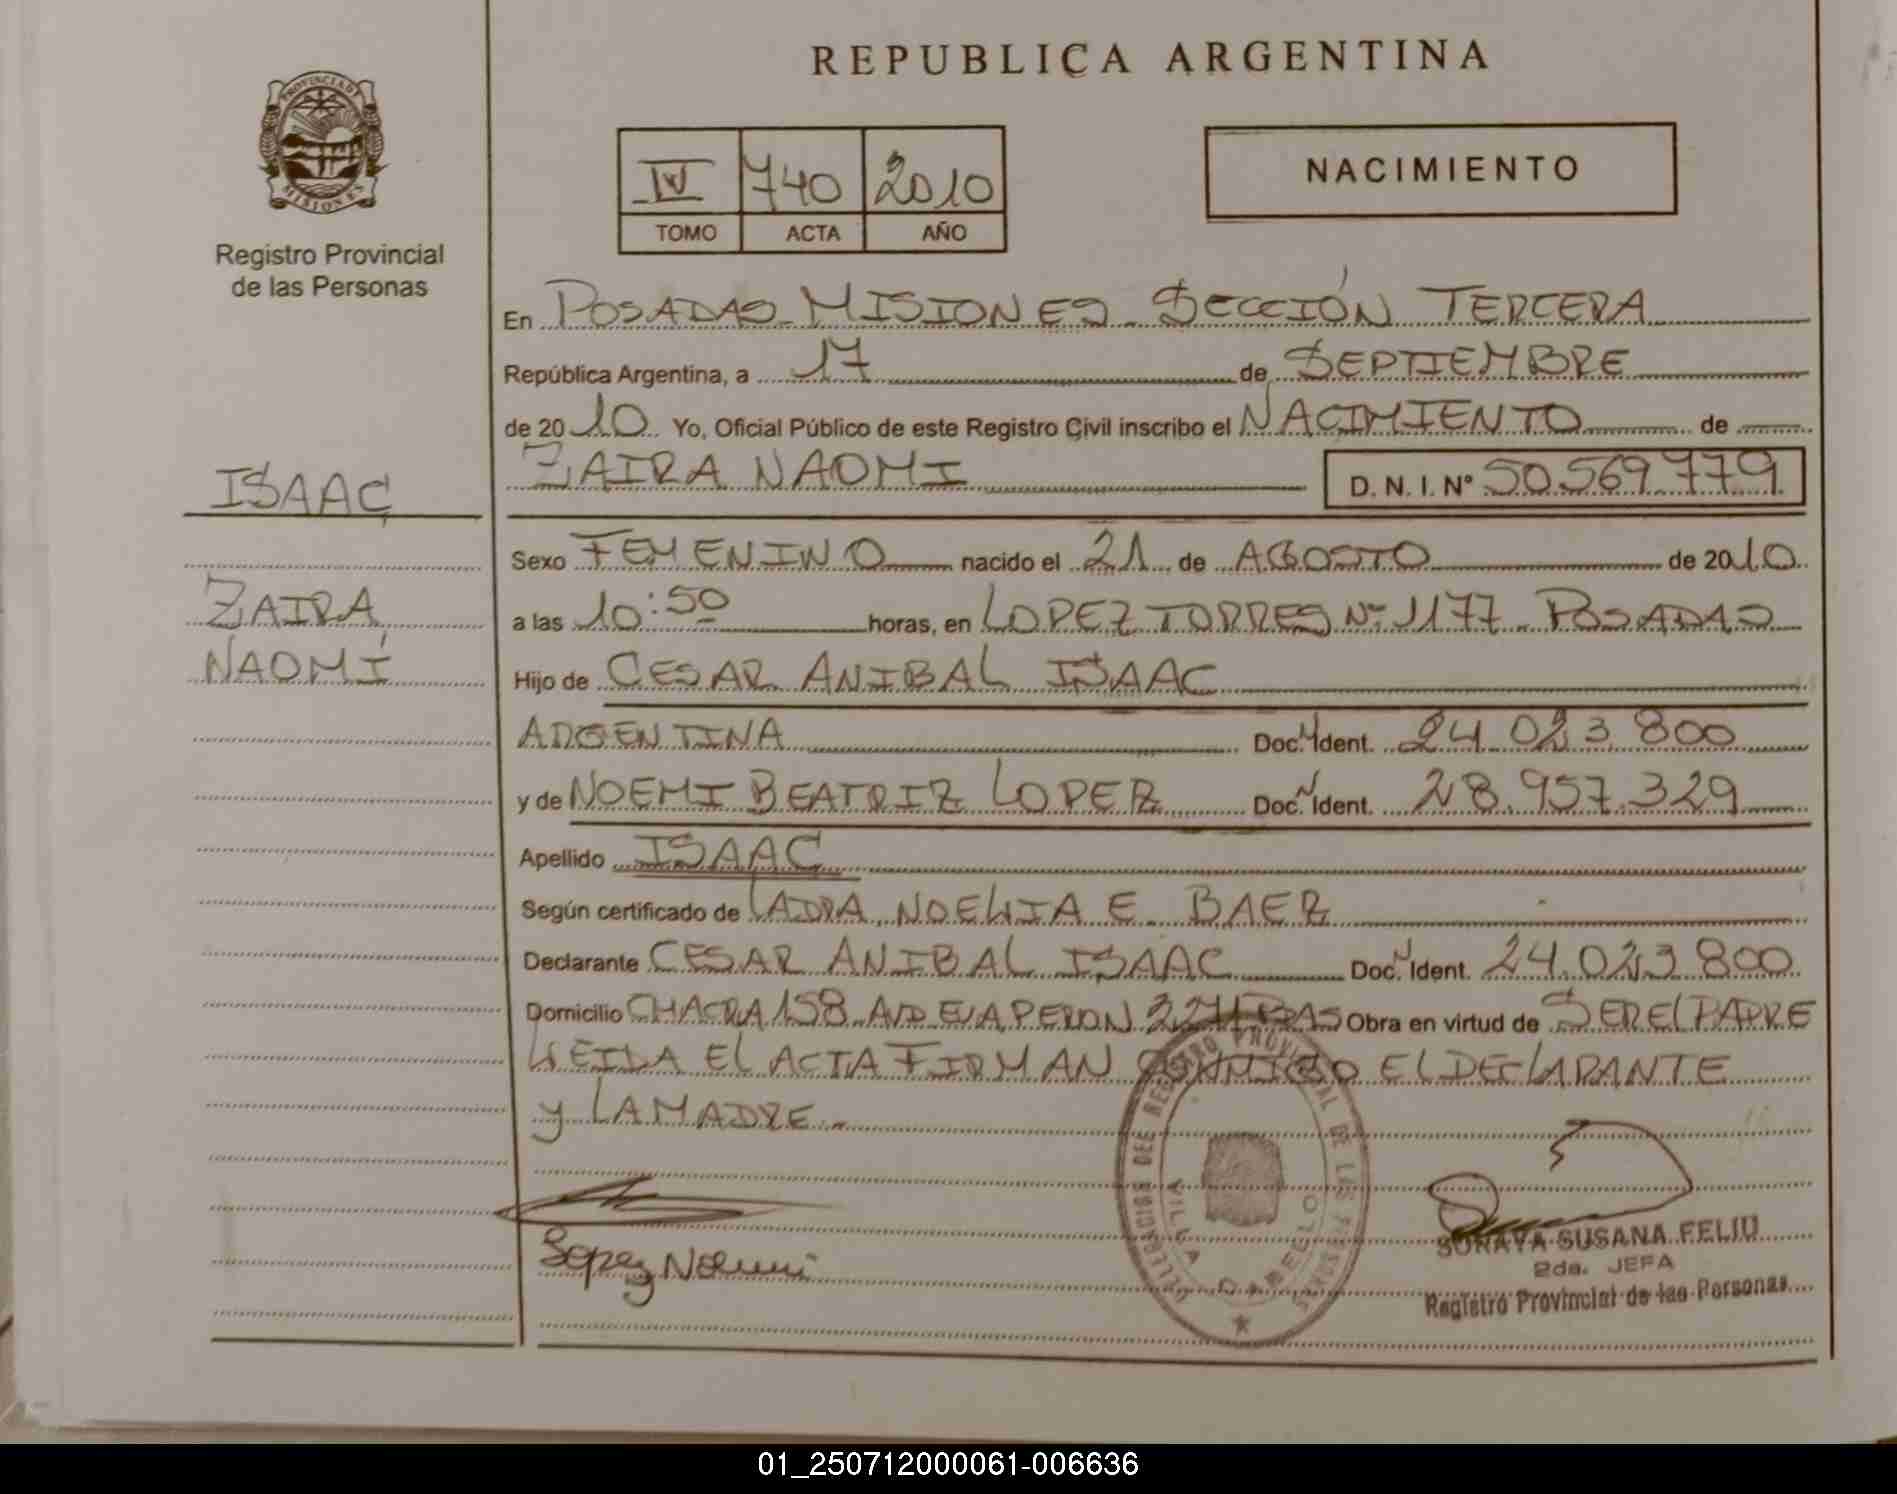 REPUBLICA ARGENTINA
PROVINCIA DE MISIONES
Registro Provincial
de las Personas
IV 740 2010
TOMO ACTA AÑO
NACIMIENTO
En POSADAS - MISIONES - SECCIÓN TERCERA
República Argentina, a 17 de SEPTIEMBRE
de 2010 Yo, Oficial Público de este Registro Civil inscribo el NACIMIENTO de
ZAIRA NAOMI D. N. I. Nº 50.569.779
ISAAC
ZAIRA
NAOMÍ
Sexo FEMENINO nacido el 21 de AGOSTO de 2010
a las 10:50 horas, en LOPEZ TORRES Nº 1177 - POSADAS
Hijo de CESAR ANIBAL ISAAC
ARGENTINA Doc. N Ident. 24.023.800
y de NOEMI BEATRIZ LOPEZ Doc. N Ident. 28.957.329
Apellido ISAAC
Según certificado de LA DRA. NOELIA E. BAEZ
Declarante CESAR ANIBAL ISAAC Doc. N Ident. 24.023.800
Domicilio CHACRA 158 AVD EVA PERON Obra en virtud de SER EL PADRE
LEIDA EL ACTA FIRMAN CONMIGO EL DECLARANTE
y LA MADRE.-
Lopez Noemi
REGISTRO PROVINCIAL DE LAS PERSONAS
VILLA CABELLO
SORAYA SUSANA FELIU
2da. JEFA
Registro Provincial de las Personas
01_250712000061-006636